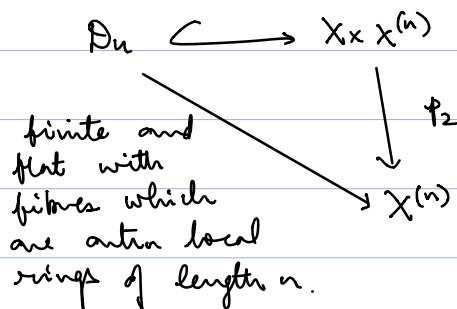 Dn ↪ X × X^(n)
p_2
X^(n)
finite and
flat with
fibres which
are artin local
rings of length n.